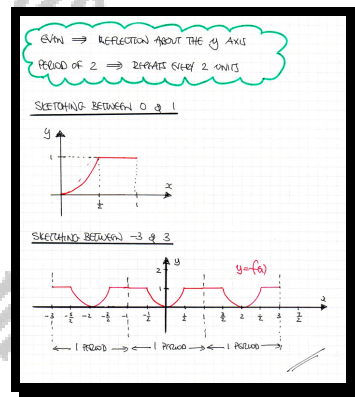 EVEN ⇒ REFLECTION ABOUT THE y AXIS
PERIOD OF 2 ⇒ REPEATS EVERY 2 UNITS
SKETCHING BETWEEN 0 & 1
y
1
x
1/2 1
SKETCHING BETWEEN -3 & 3
y
2
y=f(x)
1
x
-3 -5/2 -2 -3/2 -1 -1/2 1/2 1 3/2 2 5/2 3 7/2
1 PERIOD 1 PERIOD 1 PERIOD